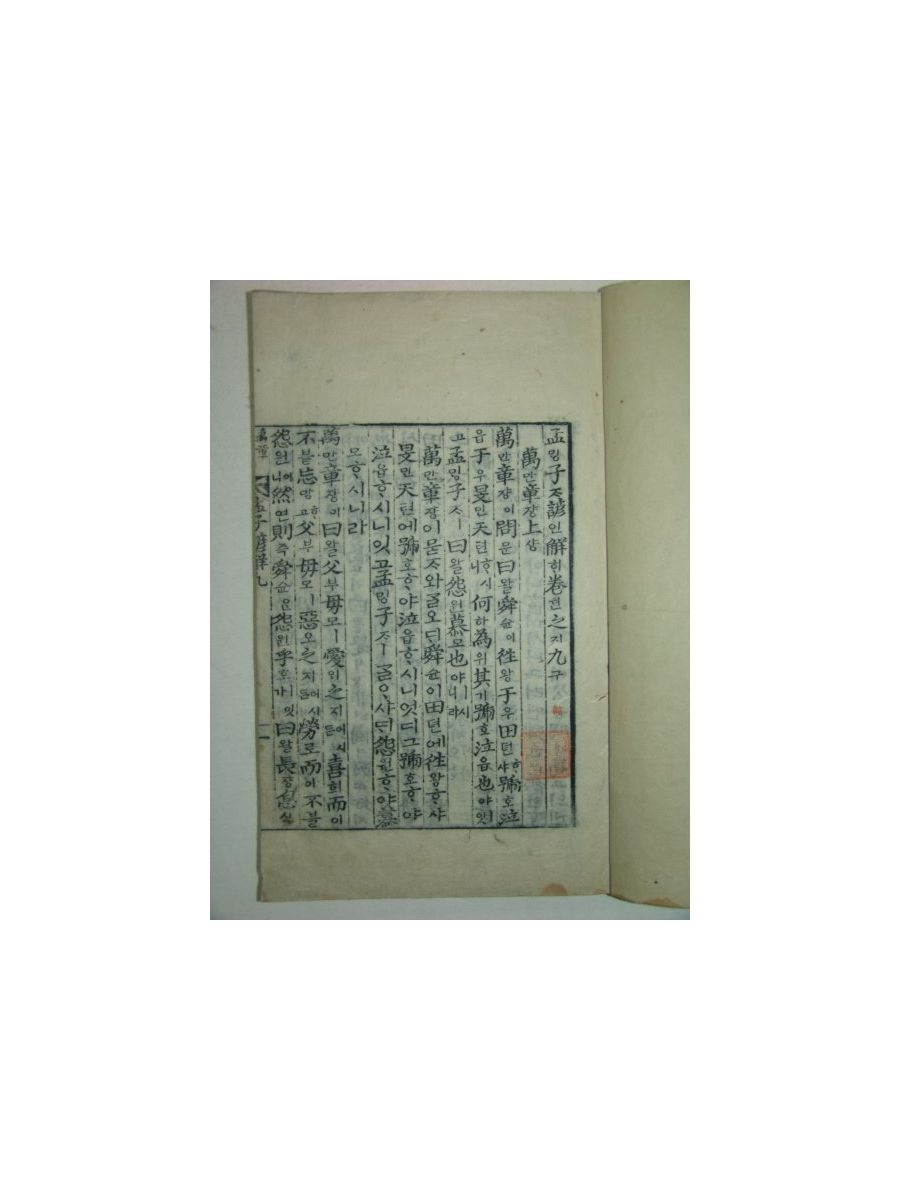 孟밍子ᄌᆞ諺언解ᄒᆡ卷권之지九구
萬만章쟝上샹
萬만章쟝이問문曰왈舜슌이往왕于우田뎐ᄒᆞ샤號호泣
읍于우旻민天텬ᄒᆞ시니何하為위其기號호泣읍也야잇
고孟밍子ᄌᆞㅣ曰왈怨원慕모也야ㅣ시니라
萬만章쟝이묻ᄌᆞ와ᄀᆞᆯ오ᄃᆡ舜슌이田뎐에往왕ᄒᆞ샤
旻민天텬에號호ᄒᆞ야泣읍ᄒᆞ시니엇디그號호ᄒᆞ야
泣읍ᄒᆞ시니잇고孟밍子ᄌᆞㅣᄀᆞᆯᄋᆞ샤ᄃᆡ怨원ᄒᆞ야慕
모ᄒᆞ시니라
萬만章쟝이曰왈父부母모ㅣ愛ᄋᆡ之지어시든喜희而이
不블忘망ᄒᆞ고父부母모ㅣ惡오之지어시든勞로而이不블
怨원이니然연則즉舜슌은怨원乎호ㅣ잇가曰왈長쟝息식
孟子諺解九
一